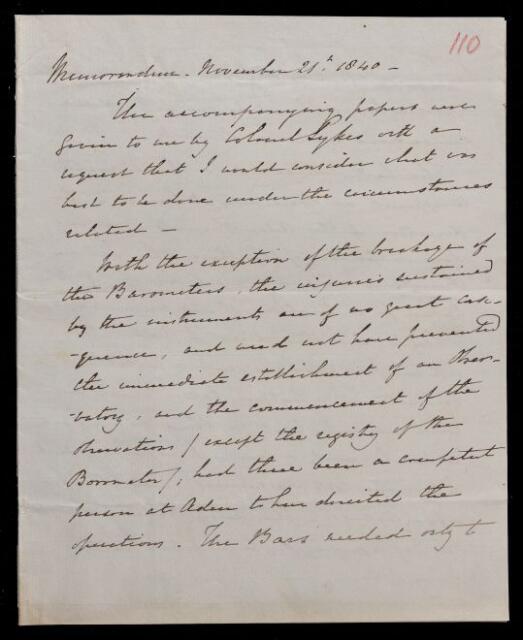 110
Memorandum. November 21st. 1840 -
The accompanying papers were
given to me by Colonel Sykes with a
request that I would consider what was
best to be done under the circumstances
related -
With the exception of the breakage of
the Barometers, the injuries sustained
by the instruments are of no great conse-
-quence, and need not have prevented
the immediate establishment of an Obser-
-vatory, and the commencement of the
observations / except the registry of the
Barometer /, had there been a competent
person at Aden to have directed the
operations. The Bars needed only to